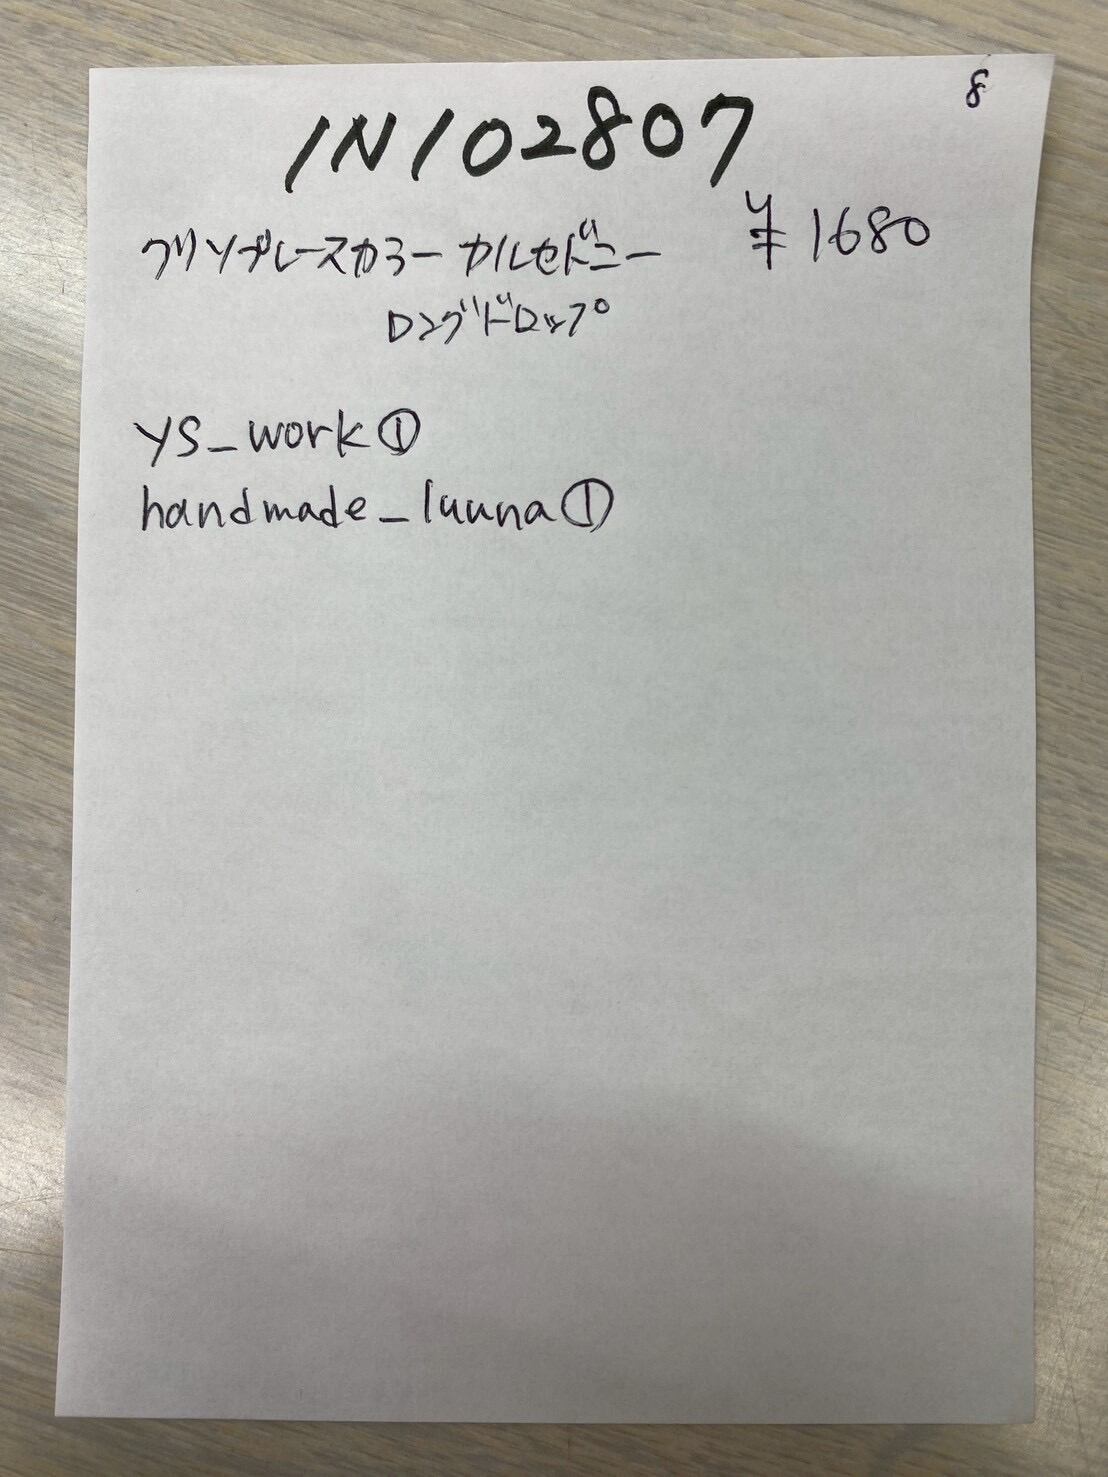 8
IN102807
クリソプレーズカラー カルセドニー ¥1680
ロングドロップ
ys_work①
handmade_luuna①